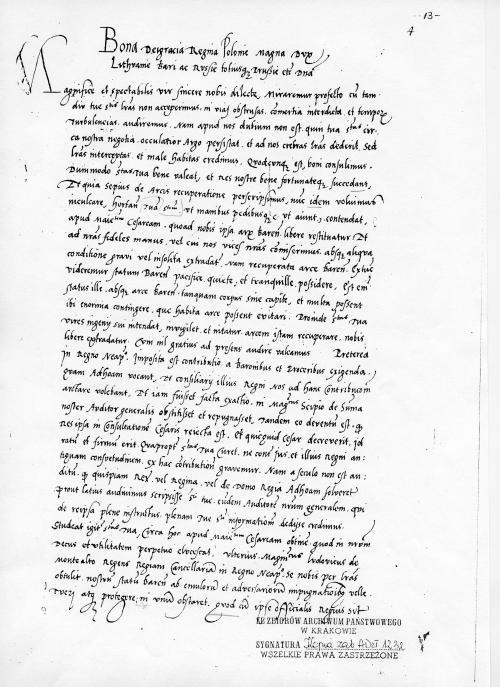 13-
4
Bona Dei gracia Regina Polonie Magna Dux
Lithvanie Bari ac Rvssie totiusq. Prussie etc Dna
Magnifice et spectabilis vir sincere nobis dilecte. Miraremur profecto cu tam
div tue lras non accepermus, ni vias obstrusas, comertia interdicta et temporu
turbulencias, audiremus. Nam apud nos dubium non est, quin tua cir
ca nostra negotia, occulatior Argo persistat, et ad nos crebras lras dederit. Sed
lras interceptas, et male habitas credimus. boni consulimus.
Dummodo tua bene valeat, et res nostre bene fortunateq. succedant,
Et quia sepius de Arcis recuperatione perscripsimus, nuc idem volumus
inculcare, hortari tua vt manibus pedibusq. vt aiunt, contendat,
apud Cesaream, quoad nobis ipsa arx Baren. libere restituatur. Et
ad nras fideles manus, vel cui nos vices nras comiserimus, absq. aliqua
conditione gravi vel insolita extradat. Nam recuperata arce Baren.
videremur statum Baren pacifice, quiete, et tranquille possidere. Est em
status ille, absq. arce Baren. tanquam corpus sine capite, et multa possent
ibi enormia contingere, que habita arce possent evitari. Proinde tua
vires ingeny sui intendat, invigilet, et nitatur, arcem istam recuperare, nobis
libere extradatur. Cum nil gratius ad presens audire valeamus. Preterea
In Regno Neap. Imposita est contributio a Baronibus et Proceribus exigenda,
Quam Adhoam vocant, et Consiliary illius Regni nos ad hanc Contributionem
arctare volebant. Et iam fuisset facta exactio, ni Scipio de Suma
noster Auditor generalis obstitisset et repugnasset, tandem eo deventu est, q.
Res ipsa in Consultatione Cesaris reiecta est. Et quicquid Cesar decreverit, id
ratu et firmu erit. Quapropt tua curet, ne cont. jus, et illius Regni an
tiquam consuetudinem, ex hac cotributione gravemur. Nam a seculo non est au
ditu, q. quispiam Rex, vel Regina, vel de Domo Regia Adhoam solveret
prout latius audivimus scripsisse tue, eundem Auditore nrum generalem, qui
de reipsa plene instructus, plenam tue informationem dedisse credimus.
Studeat igit tua, circa hoc apud Cesaream obtine, quod in nrum
Decus et vtilitatem perpetuo Vlterius, Lvdovicus de
Monte alto Regens Regiam Cancellariam in Regno Neap. se nobis per lras
obtulit, nostru statu Baren ab emuloru et adversarioru impugnationibus velle
Tueri atq. protegere, ni vnud obstaret, quod cu ipse officialis Regius sit
ZE ZBIORÓW ARCHIWUM PAŃSTWOWEGO
W KRAKOWIE
SYGNATURA
WSZELKIE PRAWA ZASTRZEŻONE